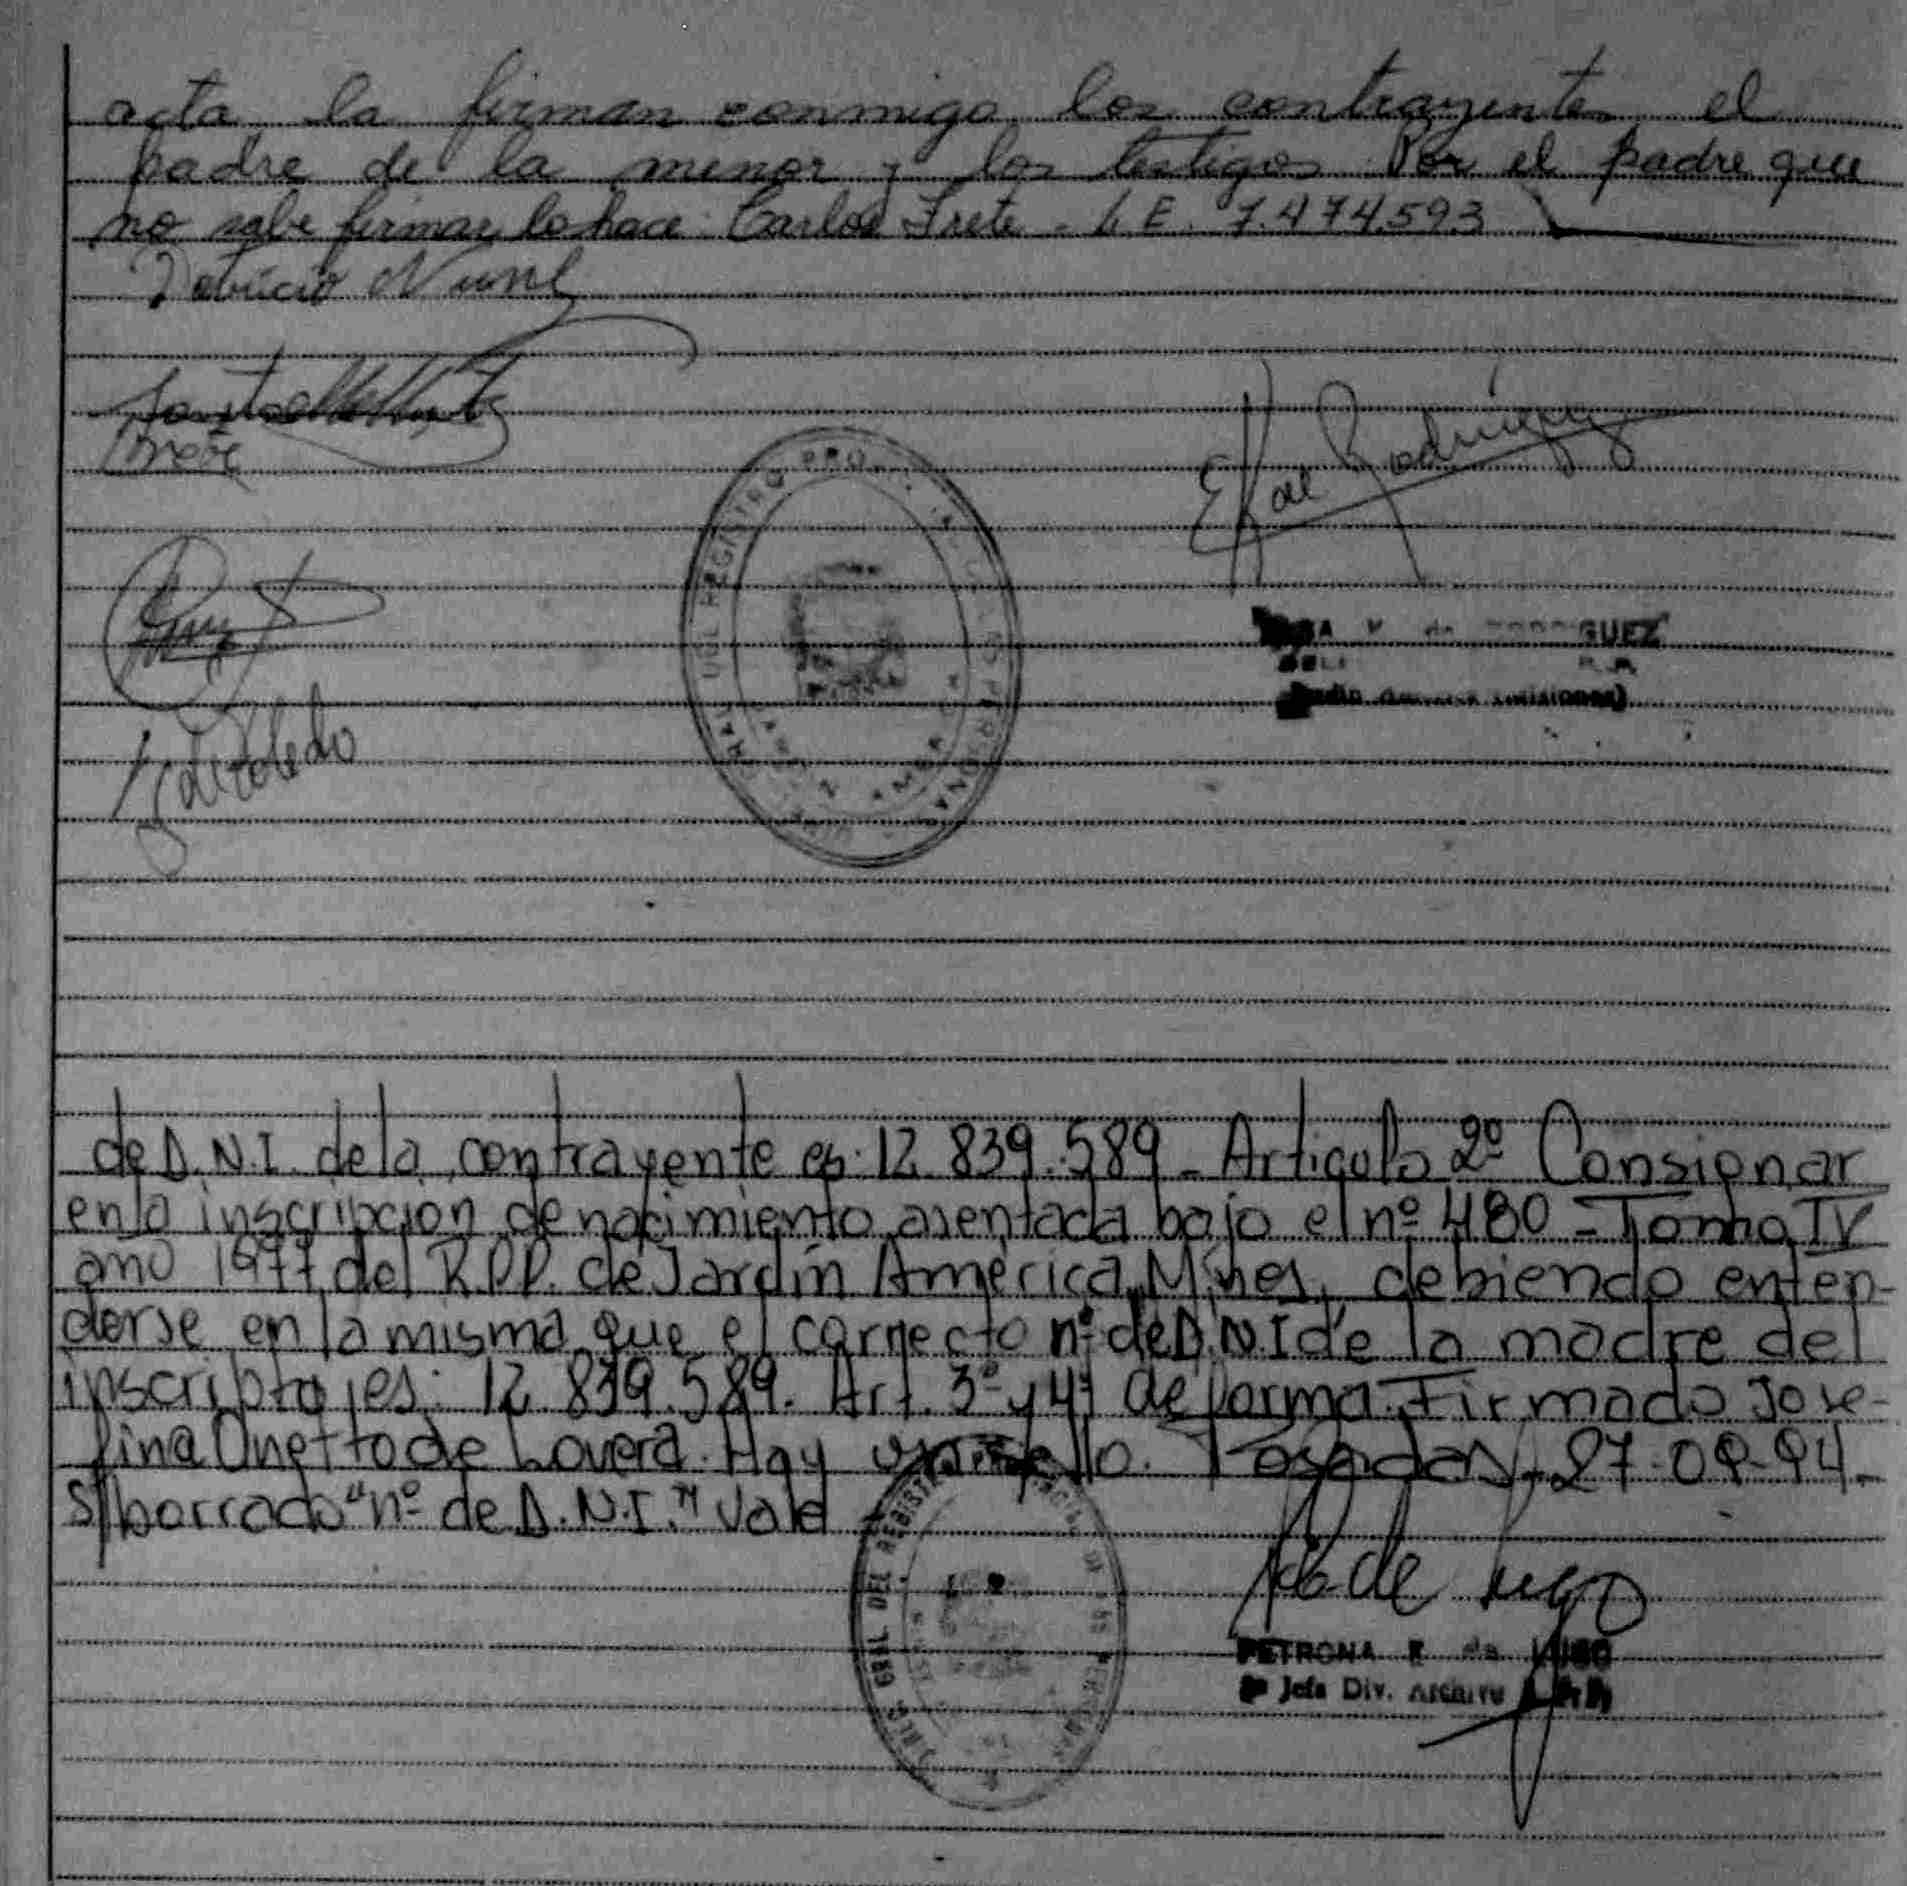 acta la firman conmigo los contrayentes el
padre de la menor y los testigos. Por el padre que
no sabe firmar lo hace: Carlos Frete - L.E. 7.474.593
Frete
E K de Rodriguez
GUEZ
de Toledo
de D.N.I. de la contrayente es: 12.839.589 - Articulo 2º Consignar
en la inscripcion de nacimiento asentada bajo el nº 480 - Tomo IV
año 1977 del R.P.P. de Jardín América, Mnes, debiendo enten-
derse en la misma que el correcto nº de D.N.I de la madre del
inscripto es: 12.839.589. Art. 3º y 4º de forma. Firmado Jose-
fina Onetto de Lovera. Hay un sello. Posadas, 27-09-94.
S/borrado "nº de D.N.I." Vale
DIREC. GRAL DEL REGISTRO
PETRONA E de LUGO
Jefa Div. Archivo